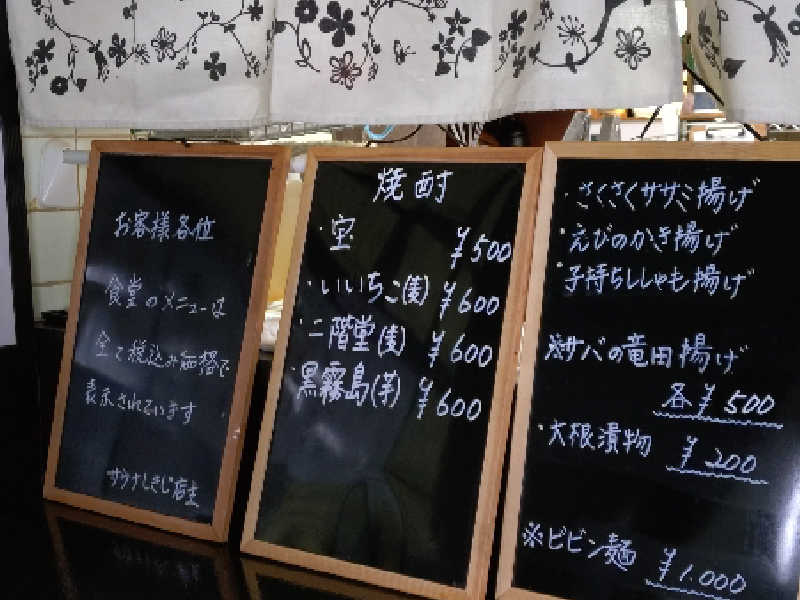 お客様各位
食堂のメニューは
全て税込み価格で
表示されています
サウナしきじ店主
焼酎
・宝 ¥500
・いいちこ(麦) ¥600
・二階堂(麦) ¥600
・黒霧島(芋) ¥600
・さくさくササミ揚げ
・えびのかき揚げ
・子持ちししゃも揚げ
※サバの竜田揚げ
各¥500
・大根漬物 ¥200
※ビビン麺 ¥1.000